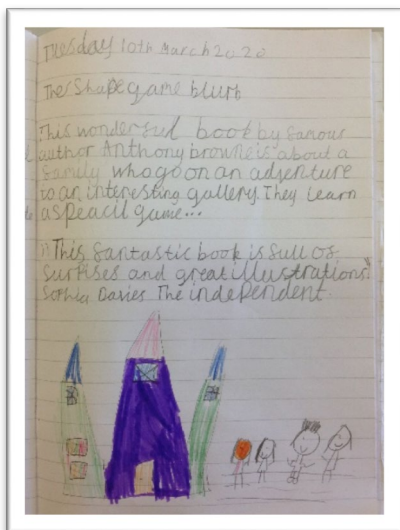 Tuesday 10th March 2020
The Shape game blurb
This wonderful book by famous
author Anthony browne is about a
family who go on an adventure
to an interesting gallery. They learn
a speacil game...
"This fantastic book is full of
surprises and great illustrations"
Sophia Davies The independent.